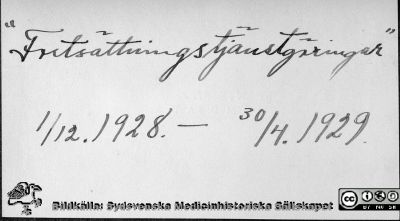 "Fortsättningstjänstgöringar"
1/12. 1928. — 30/4. 1929.
Bildkälla: Sydsvenska Medicinhistoriska Sällskapet
CC BY NC SA